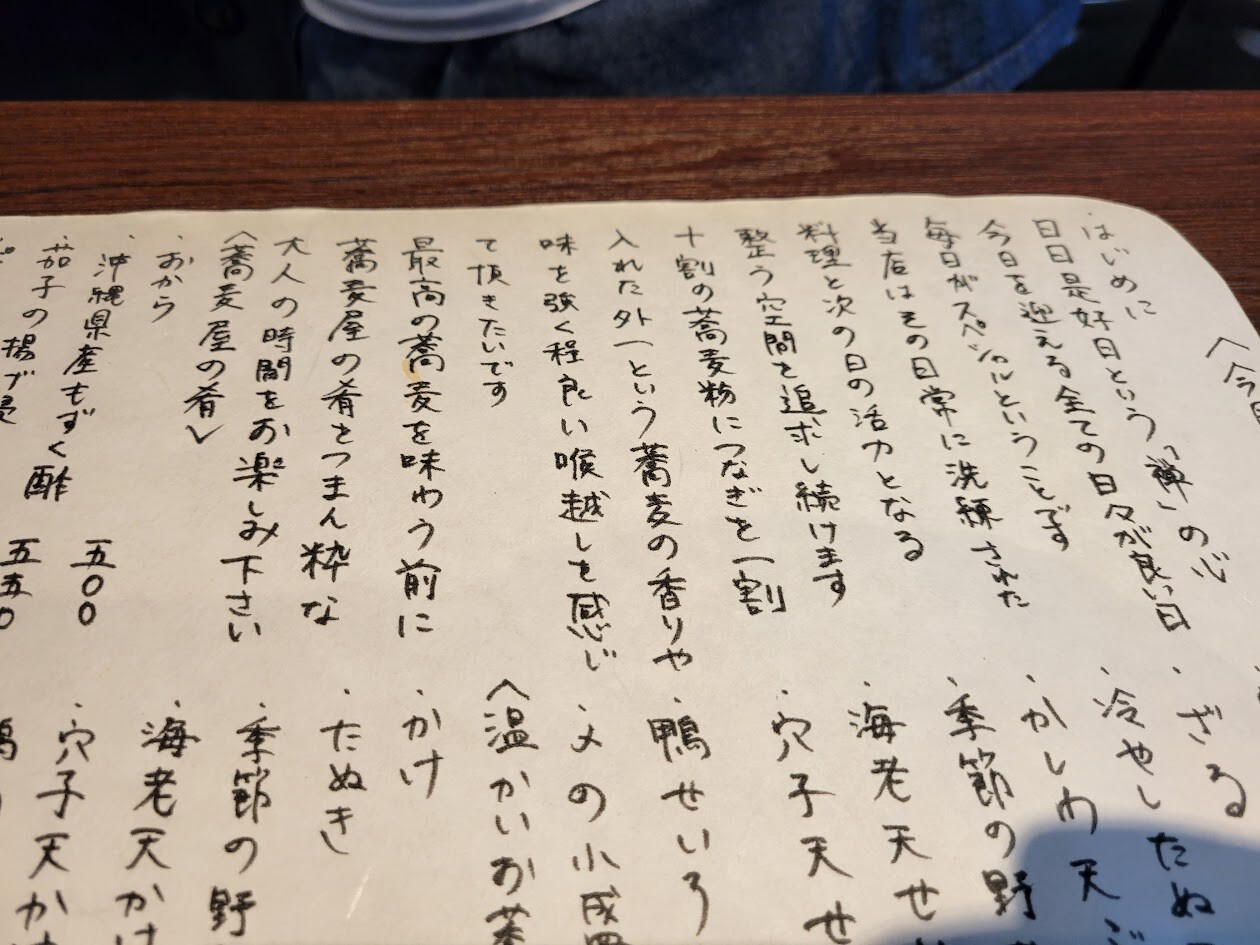 〈今日
・はじめに
日日是好日という「禅」の心
今日を迎える全ての日々が良い日
毎日がスペシャルということです
当店はその日常に洗練された
料理と次の日の活力となる
整う空間を追求し続けます
十割の蕎麦粉につなぎを一割
入れた外一という蕎麦の香りや
味を強く程良い喉越しを感じ
て頂きたいです
最高の蕎麦を味わう前に
蕎麦屋の肴をつまん粋な
大人の時間をお楽しみ下さい
〈蕎麦屋の肴〉
・おから
・沖縄県産もずく酢 五〇〇
・茄子の揚げ浸 五五〇
・ざる
・冷やしたぬ
・かしわ天ご
・季節の野
・海老天せ
・穴子天せ
・鴨せいろ
・〆の小盛
〈温かいお蕎
・かけ
・たぬき
・季節の野
・海老天かけ
・穴子天かけ